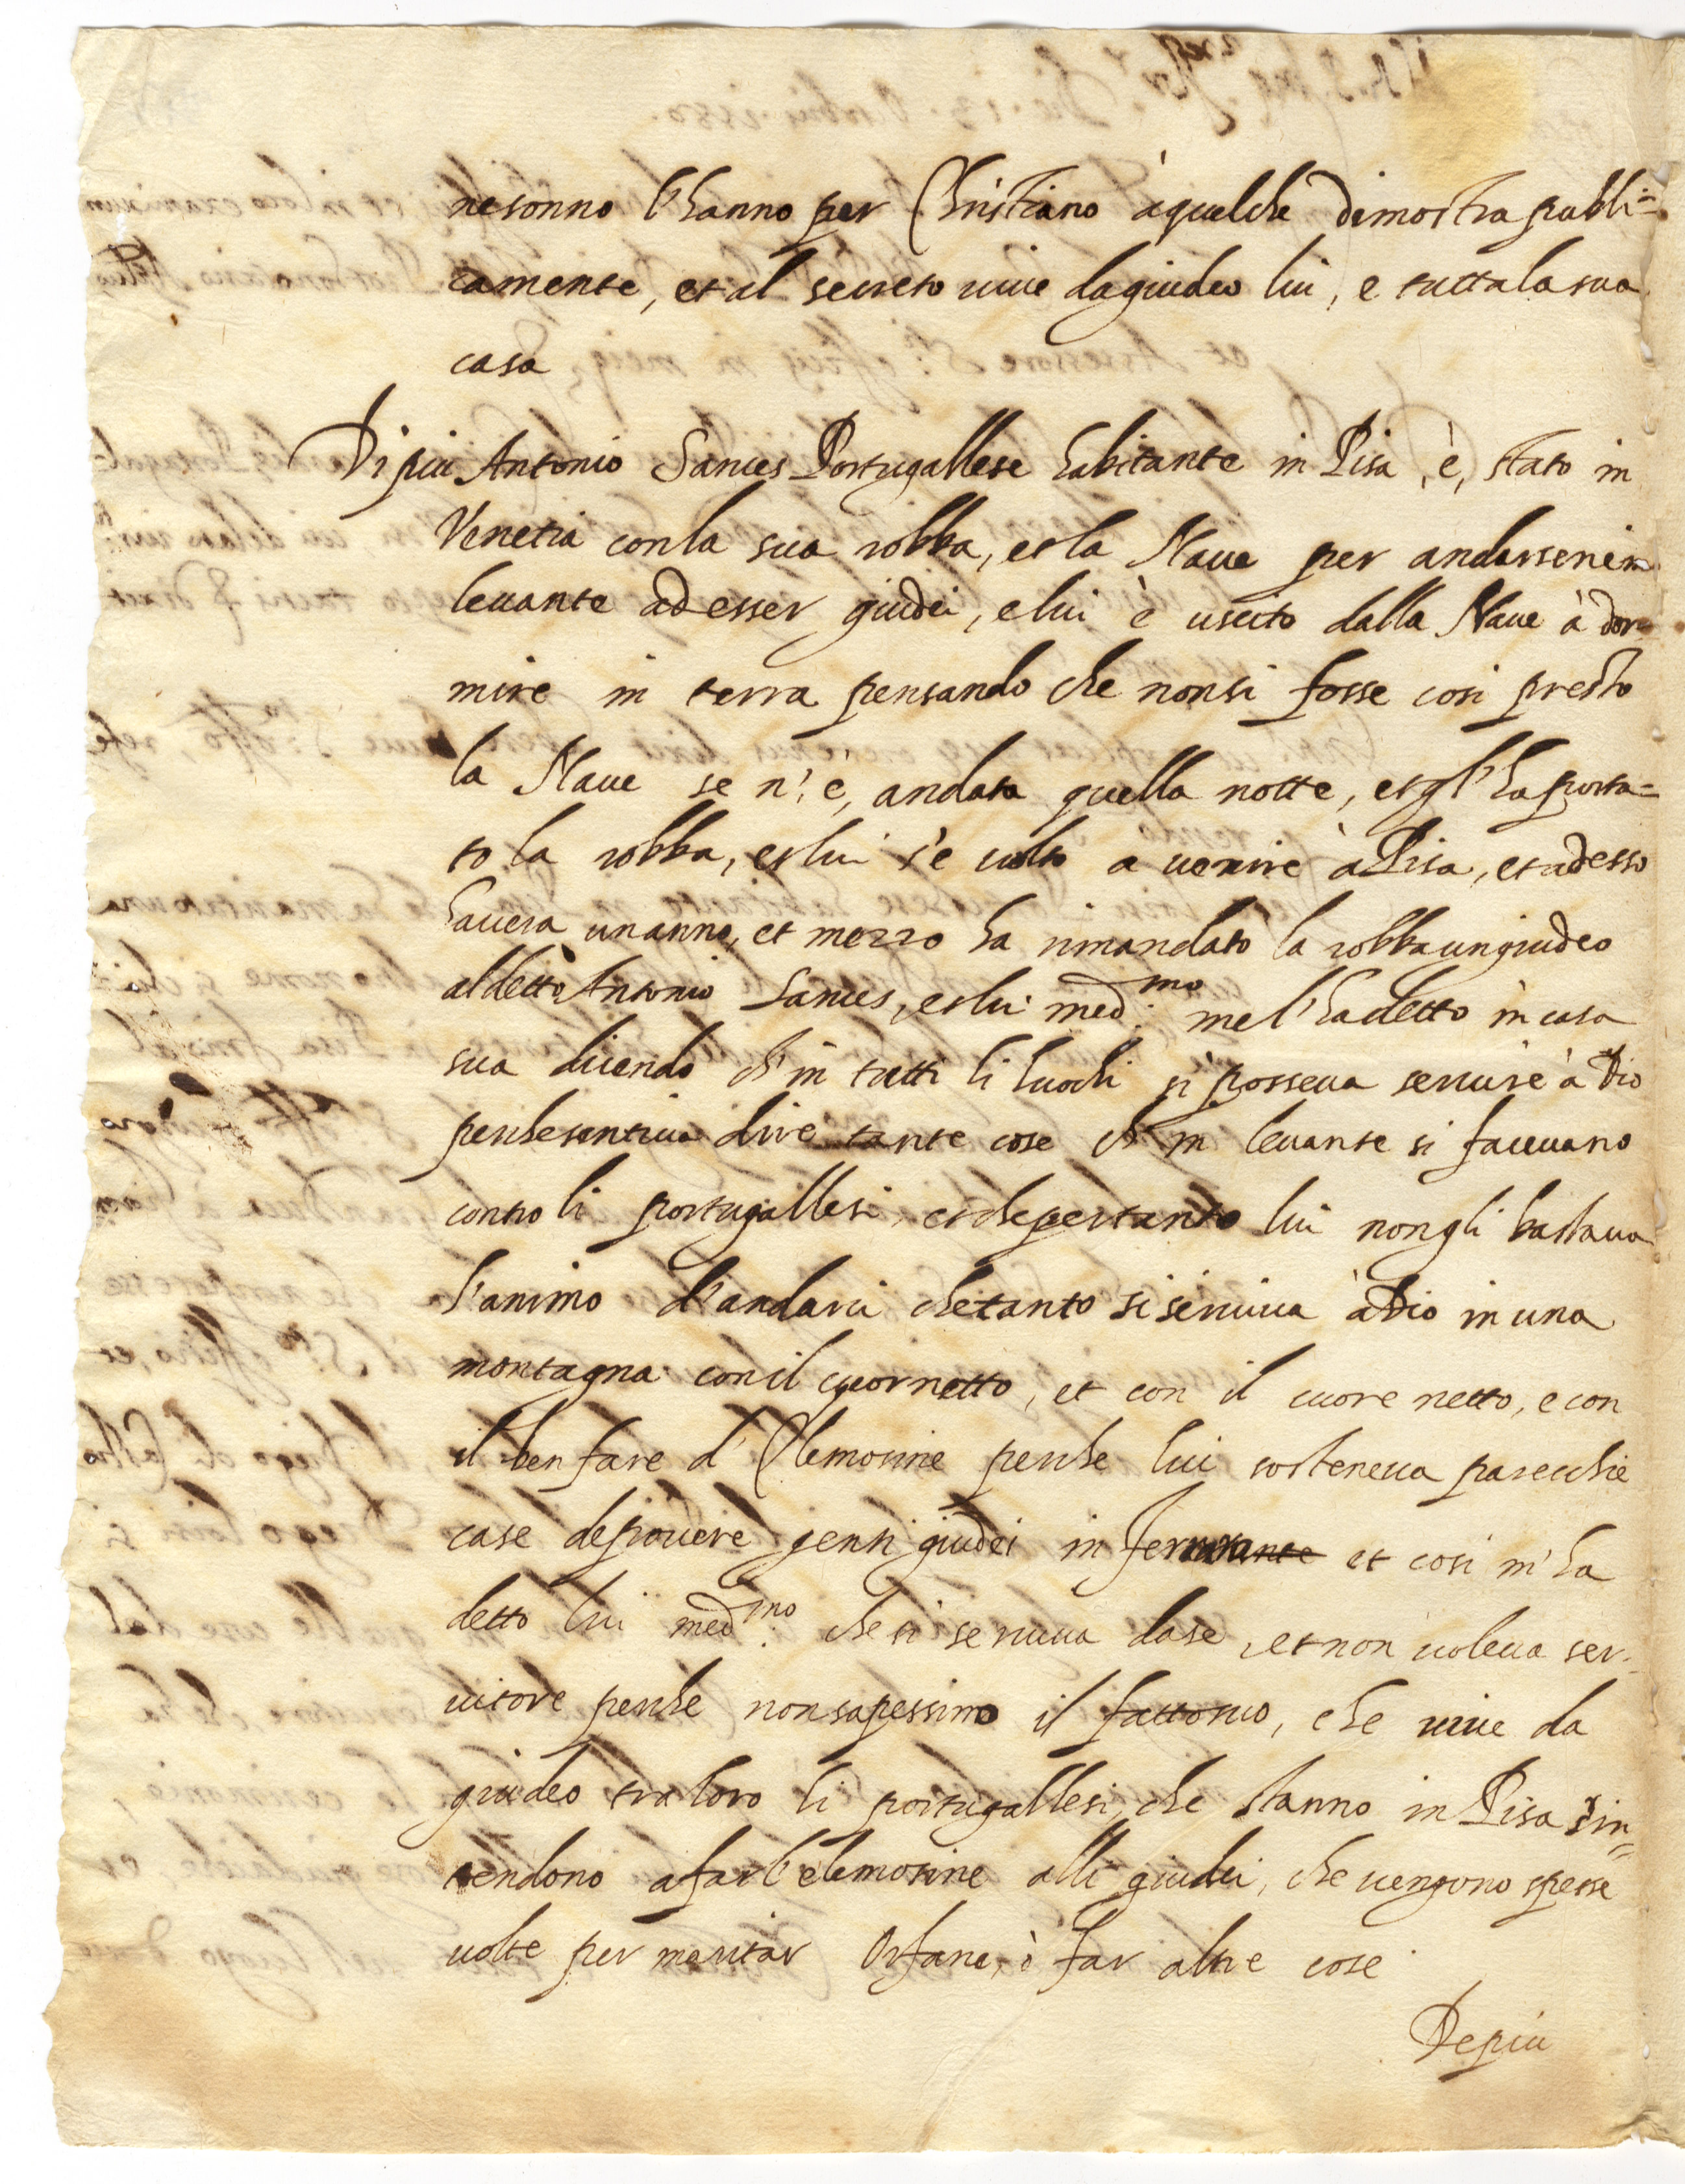 nesonno l'hanno per Christiano à quel che dimostra publi=
camente, et al secreto uiue da giudeo lui, e tutta la sua
casa
Di piu Antonio Sances Portugallese habitante in Pisa, è, stato in
Venetia con la sua robba, et la Naue per andarsene in
leuante ad esser giudei, e lui è uscito dalla Naue à dor=
mire in terra pensando che non si fosse cosi presto
la Naue se n'è, andata quella notte, et gl'ha porta=
to la robba, et lui s'è uolto a uenire à Pisa, et adesso
hauera un anno, et mezzo ha rimandato la robba un giudeo
al detto Antonio Sances, et lui med.mo me l'ha detto in casa
sua dicendo ch'in tutti li luochi si posseua seruire à Dio
perche sentiua dire tante cose ch'in leuante si faceuano
contro li portugallesi, et che pertanto lui non gli bastaua
l'animo d'andarci che tanto si seruiua à Dio in una
montagna con il cuor netto, et con il cuore netto, e con
il ben fare d'Elemosine perche lui sosteneua parecchie
case de pouere genti giudei in et cosi m'ha
detto lui med.mo che si seruiua da se, et non uoleua ser=
uitore perche non sapessimo il fatto suo, che uiue da
giudeo tra loro li portugallesi, che stanno in Pisa s'in=
tendono a far l'elemosine alli giudei, che uengono spesse
uolte per maritar Orfane, ò far altre cose
De piu